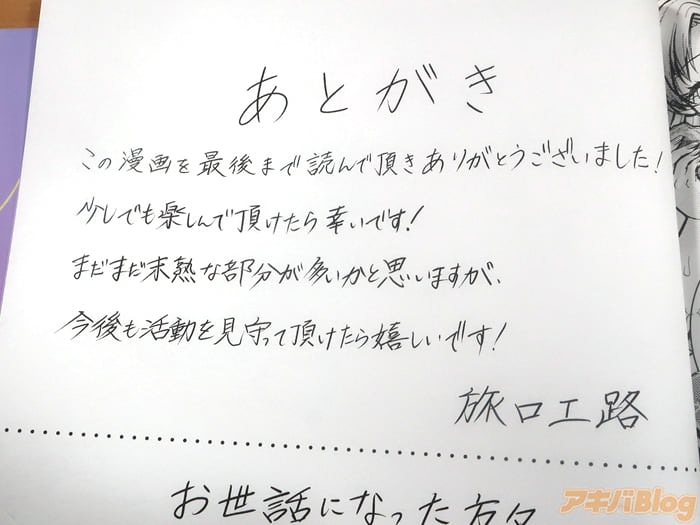 あとがき
この漫画を最後まで読んで頂きありがとうございました!
少しでも楽しんで頂けたら幸いです!
まだまだ未熟な部分が多いかと思いますが、
今後も活動を見守って頂けたら嬉しいです!
旅口工路
お世話になった方々
アキバBlog